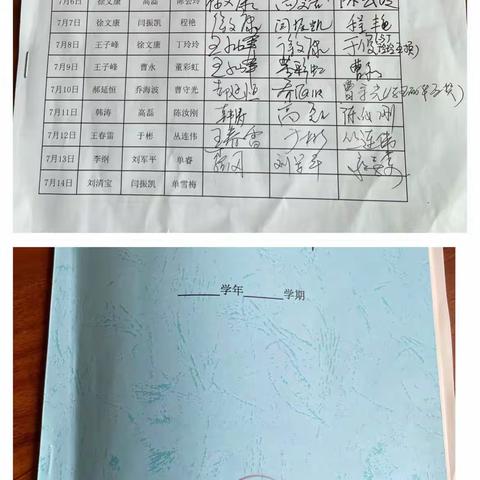 7月6日 徐文康 高磊 陈会玲
7月7日 徐文康 闫振凯 程艳 徐文康 闫振凯 程艳
7月8日 王子峰 徐文康 丁玲玲 王子峰 徐文康
7月9日 王子峰 曹永 董彩虹 王子峰 董彩虹 曹永
7月10日 郝延恒 乔海波 曹守光 郝延恒
7月11日 韩涛 高磊 陈汝刚 韩涛 高磊 陈汝刚
7月12日 王春雷 于彬 丛连伟 王春雷 于彬 丛连伟
7月13日 李纲 刘军平 单睿 刘军平
7月14日 刘清宝 闫振凯 单雪梅
______学年______学期